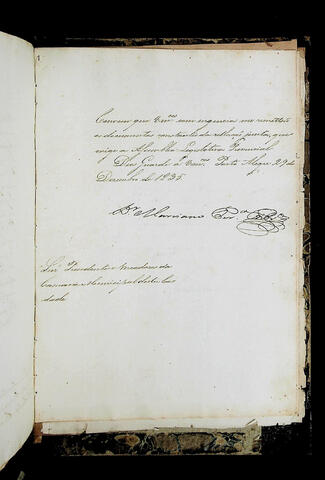 Convem que Vmces com urgencia me remettão
os documentos constantes da relação junta, que
exige a Assemblea Legislativa Provincial
Deos Guarde a Vmces. Porto Alegre 27 de
Dezembro de 1835
Dr. Marciano Pera
Snrs. Presidente e Vereadores da
Camara Municipal desta Ci
dade